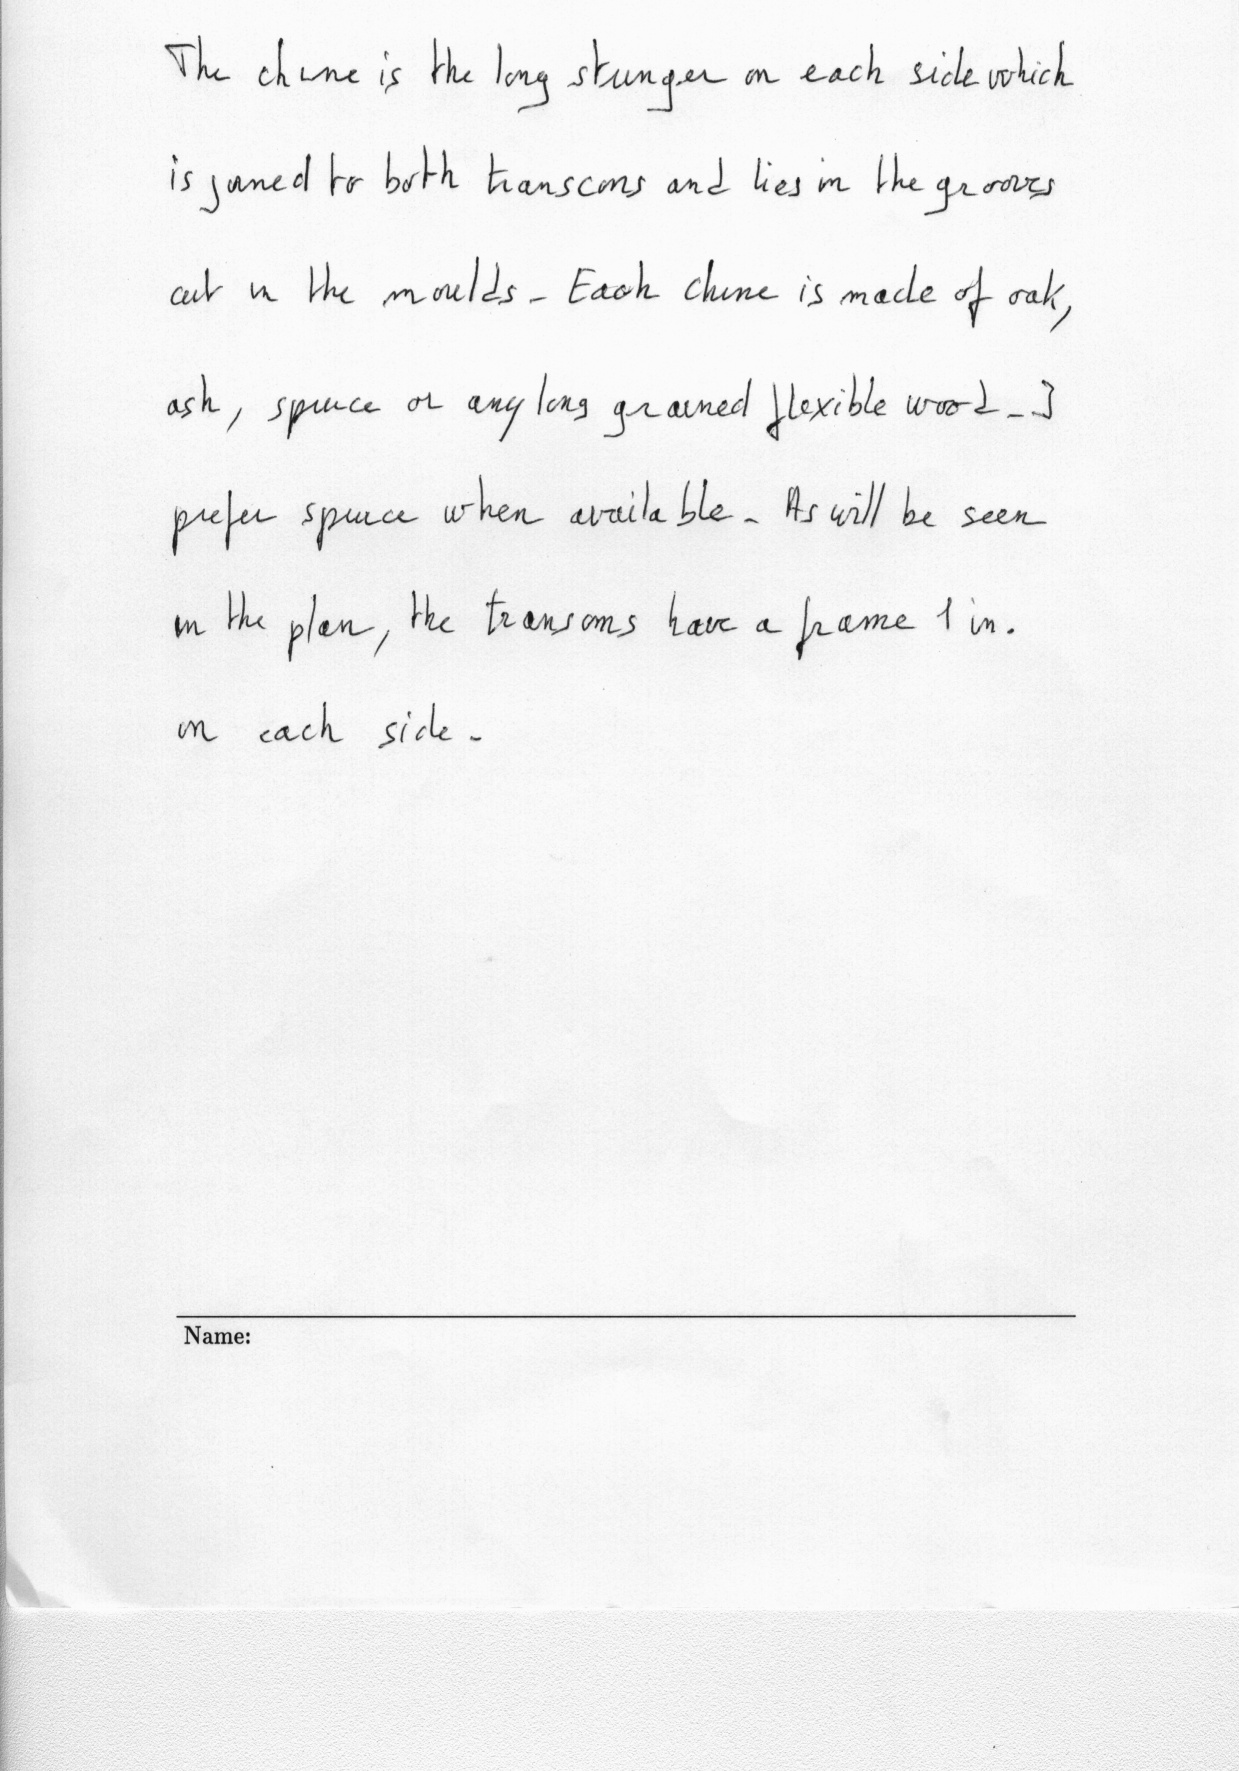 The chine is the long stringer on each side which
is joined to both transoms and lies in the grooves
cut in the moulds. Each chine is made of oak,
ash, spruce or any long grained flexible wood. I
prefer spruce when available. As will be seen
in the plan, the transoms have a frame 1 in.
on each side.
Name: